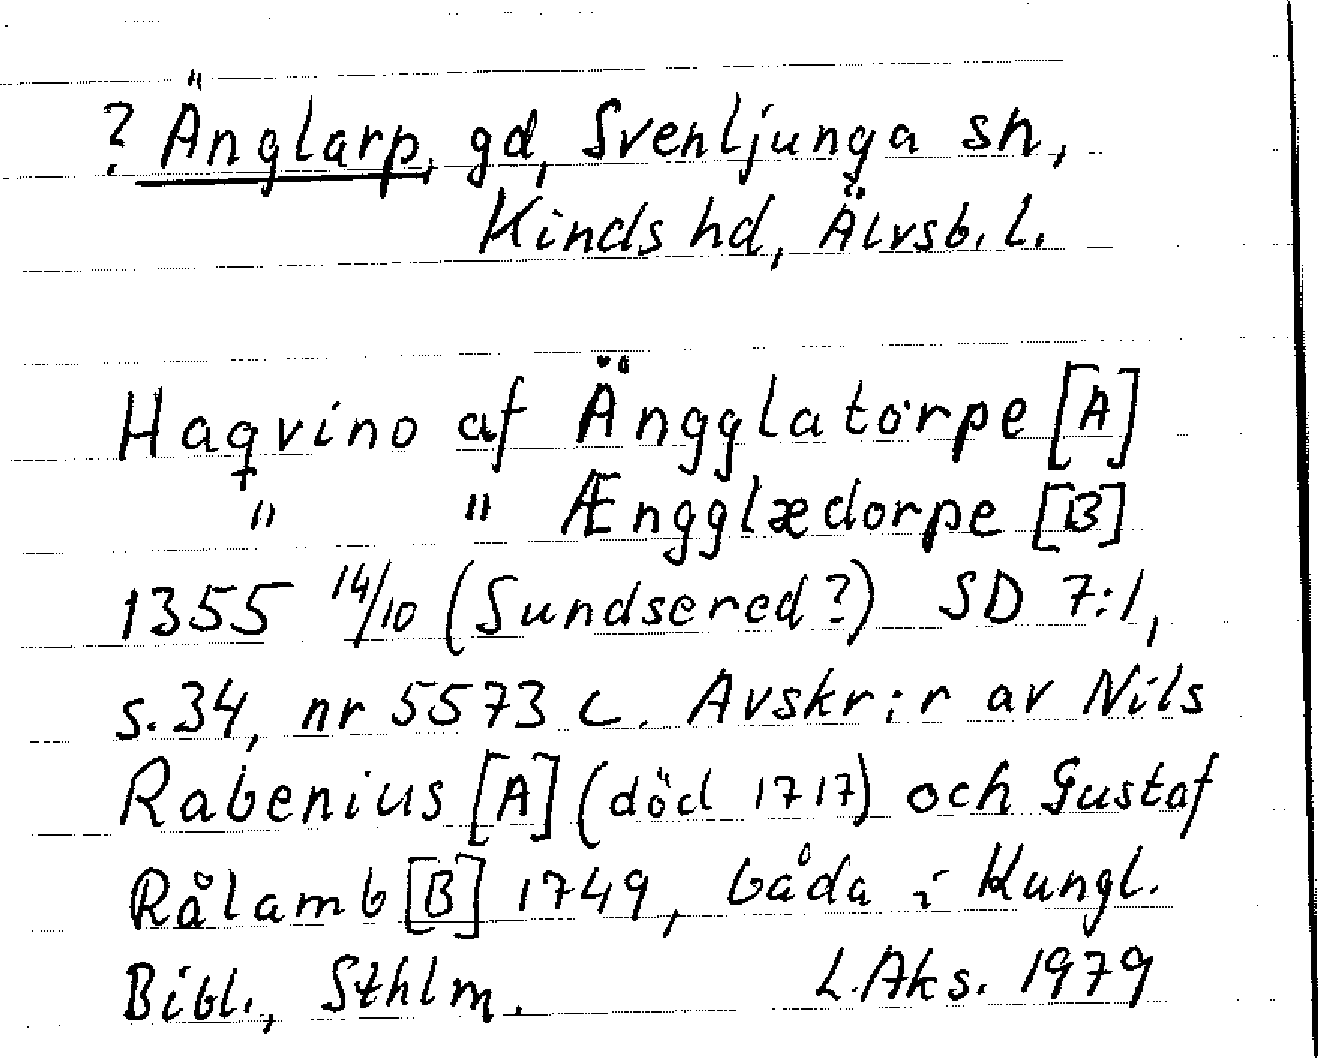 ? Änglarp, gd, Svenljunga sn,
Kinds hd, Älvsb. l.
Haqvino af Ängglatorpe [A]
" " Ængglædorpe [B]
1355 14/10 (Sundsered?) SD 7:1,
s. 34, nr 5573 c. Avskr:r av Nils
Rabenius [A] (död 1717) och Gustaf
Rålamb [B] 1749, båda i Kungl.
Bibl., Sthlm. L. Aks. 1979